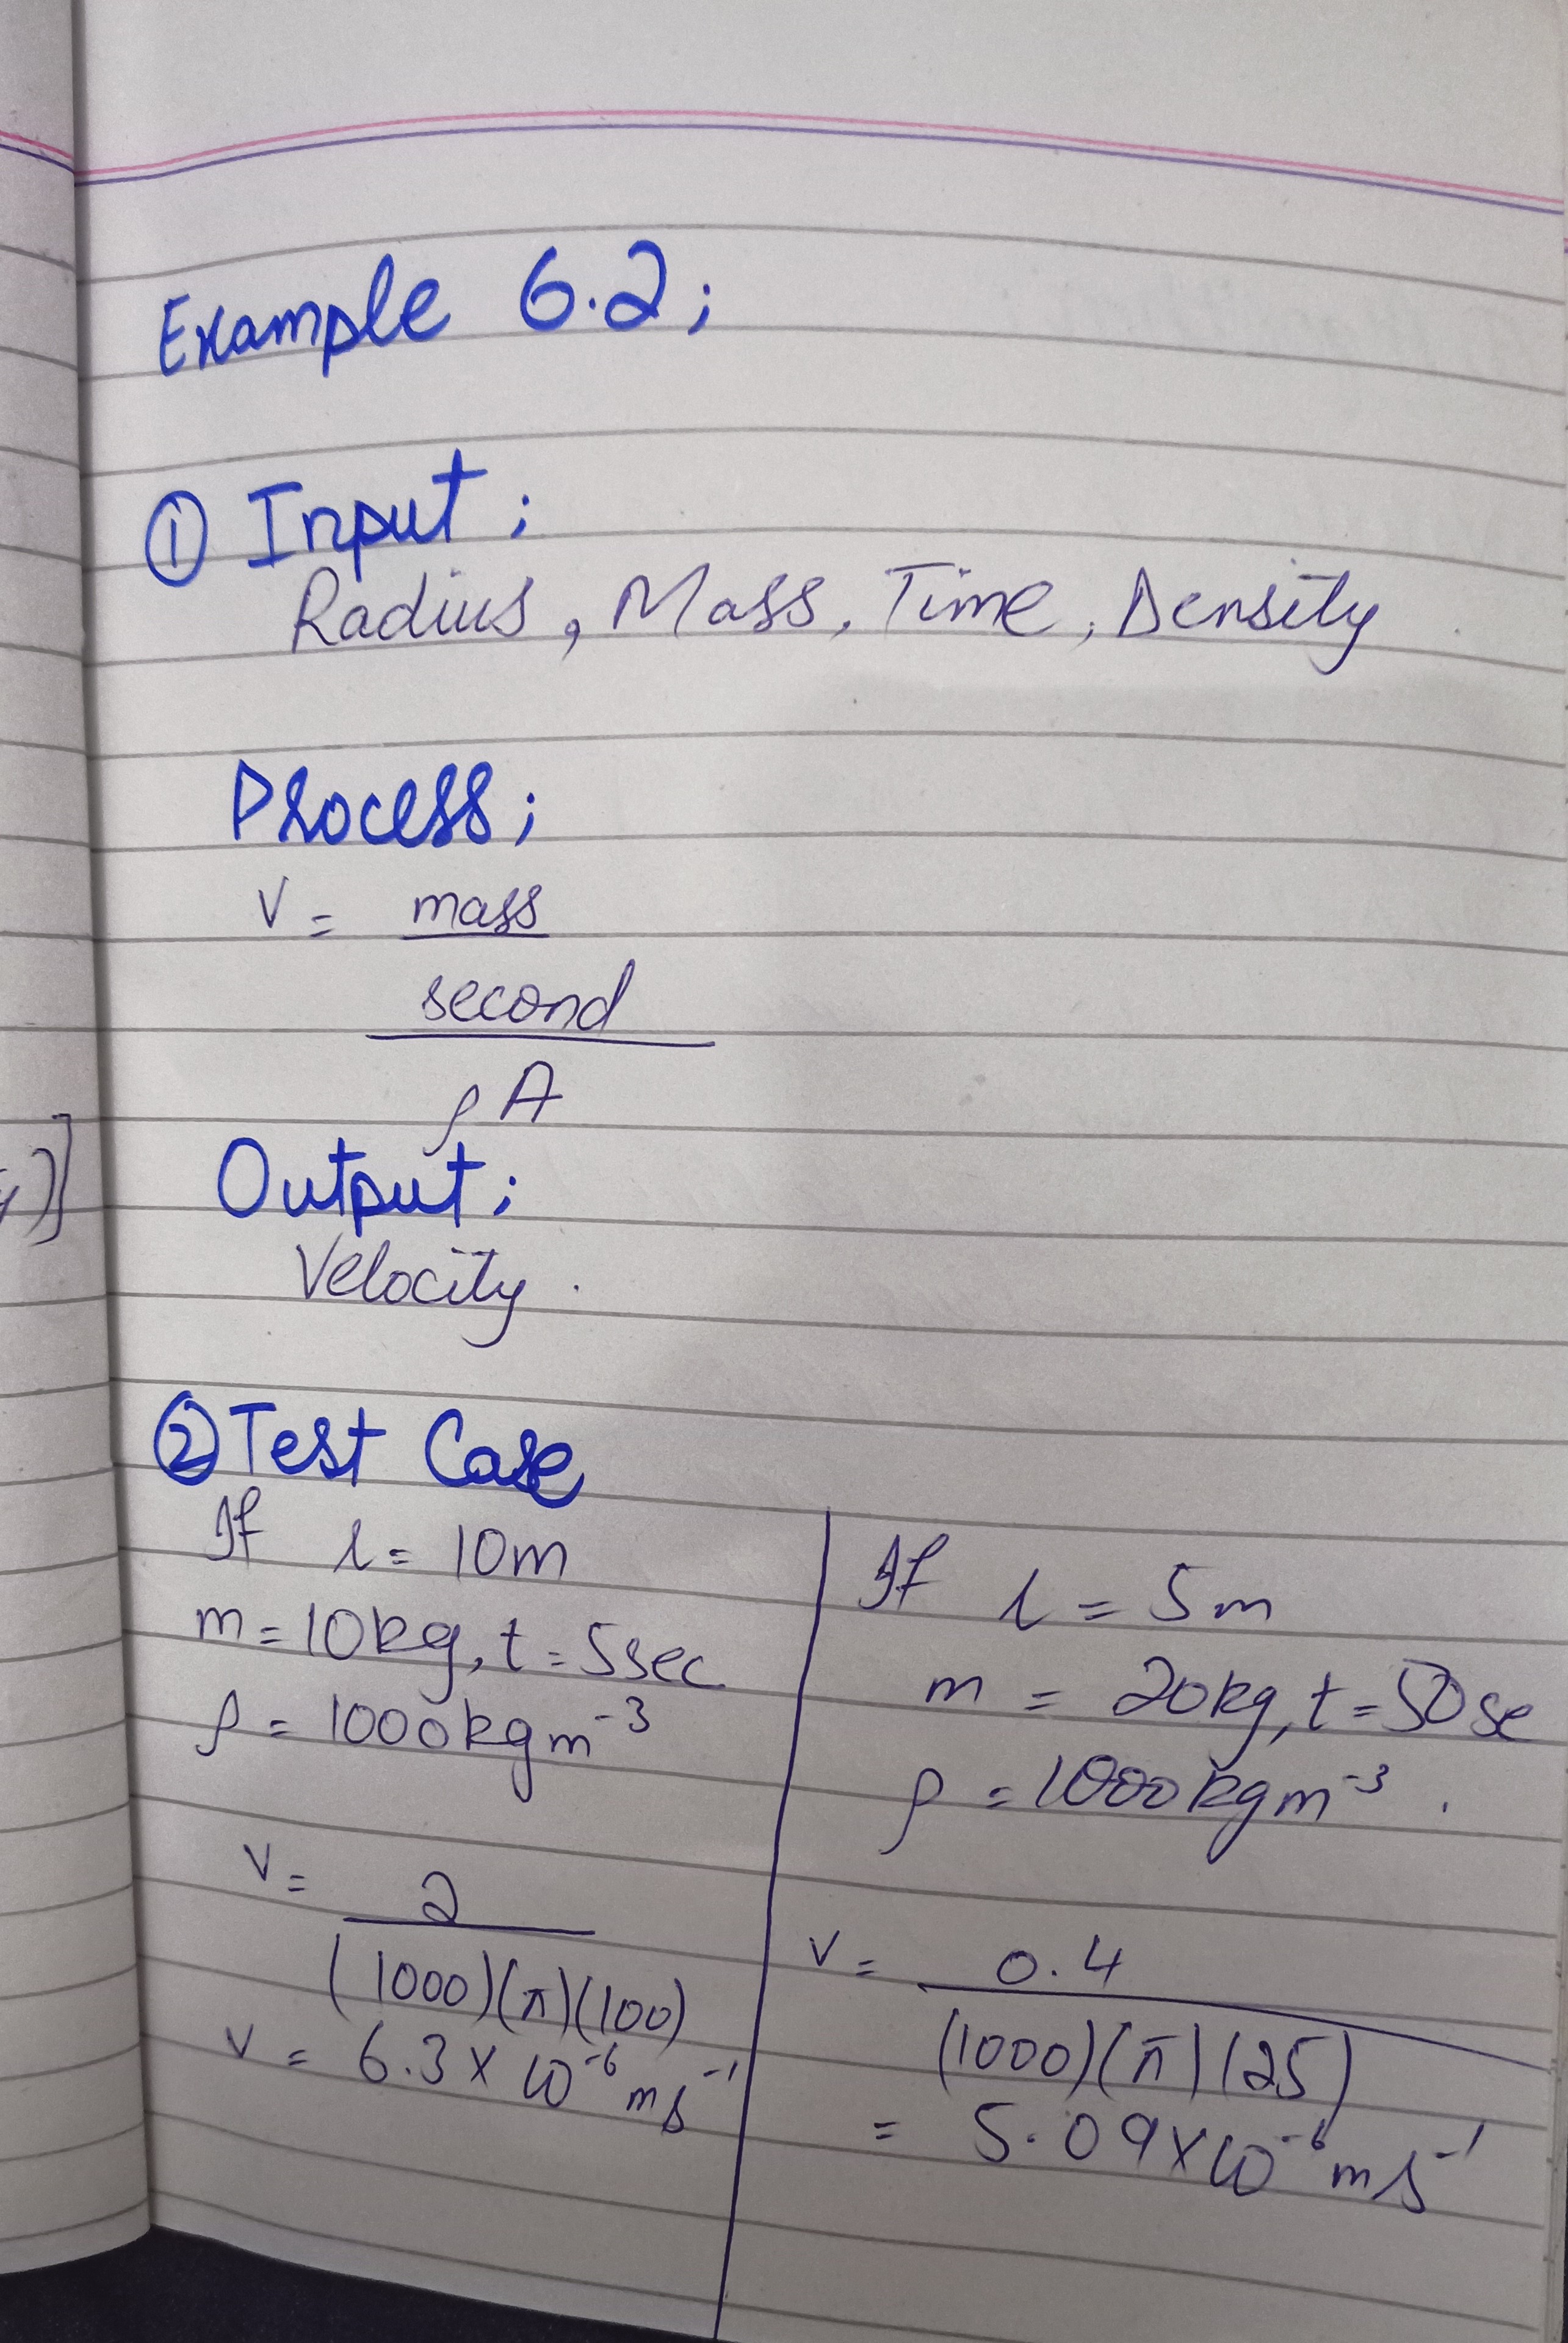 Example 6.2;
① Input;
Radius, Mass, Time, Density
Process;
V = mass
second
ρA
Output;
Velocity.
② Test Case
If r = 10m
m = 10kg, t = 5sec
ρ = 1000kgm⁻³
V = 2
(1000)(π)(100)
V = 6.3 × 10⁻⁶ ms⁻¹
If r = 5m
m = 20kg, t = 50se
ρ = 1000kgm⁻³.
V = 0.4
(1000)(π)(25)
= 5.09×10⁻⁶ ms⁻¹